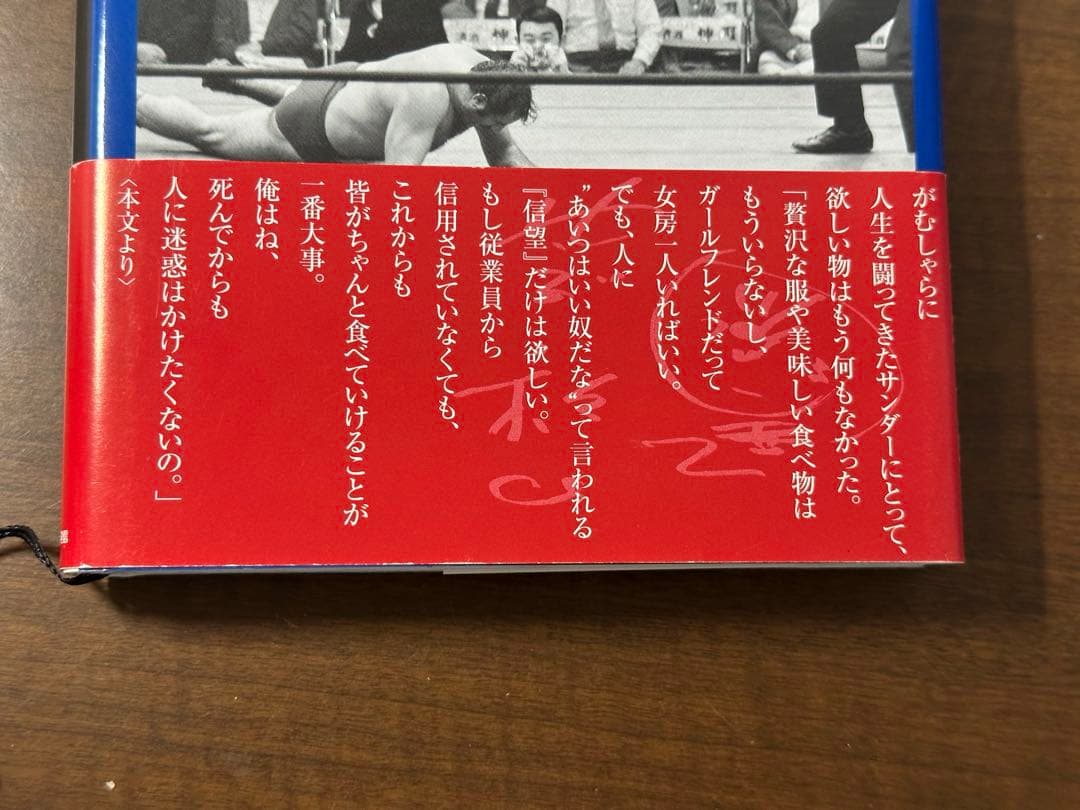 がむしゃらに
人生を闘ってきたサンダーにとって、
欲しい物はもう何もなかった。
「贅沢な服や美味しい食べ物は
もういらないし、
ガールフレンドだって
女房一人いればいい。
でも、人に
“あいつはいい奴だな”って言われる
『信望』だけは欲しい。
もし従業員から
信用されていなくても、
これからも
皆がちゃんと食べていけることが
一番大事。
俺はね、
死んでからも
人に迷惑はかけたくないの。」
〈本文より〉